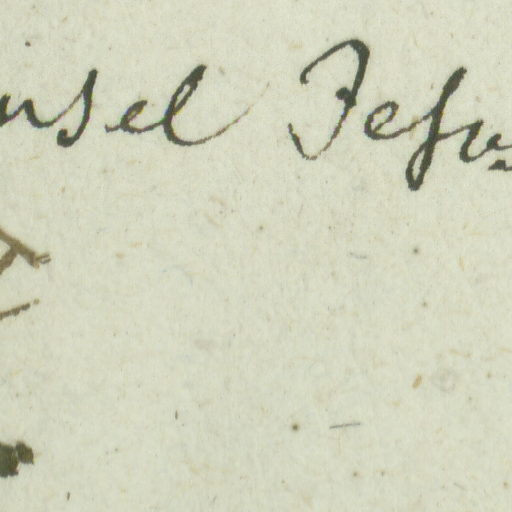 insel Jesus